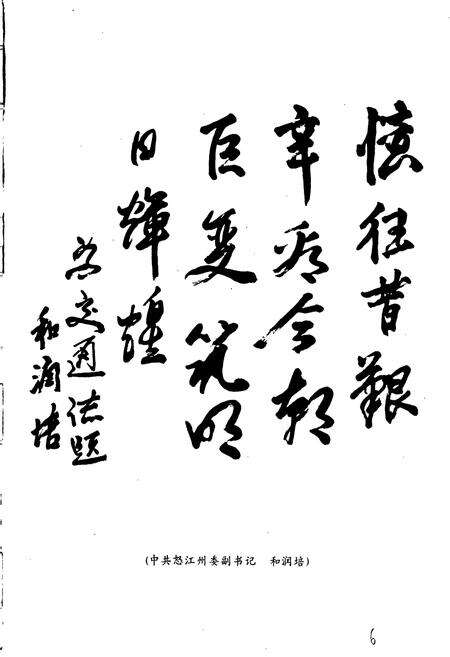 憶往昔艰
辛看今朝
巨变筑明
日辉煌
为交通志题
和润培
(中共怒江州委副书记 和润培)
6